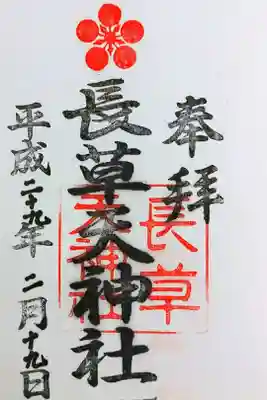 奉拝
長草天神社
長草天神社
平成二十九年 二月十九日